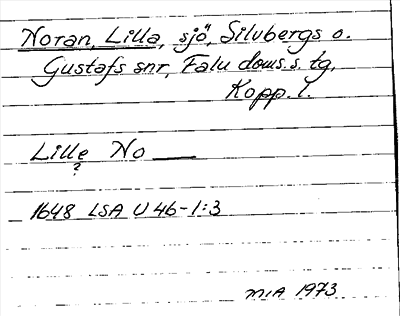 Noran, Lilla, sjö, Silvbergs o.
Gustafs snr, Falu doms.s. tg,
Kopp. l.
Lille No
?
1648 LSA U 46-1:3
MIA 1973